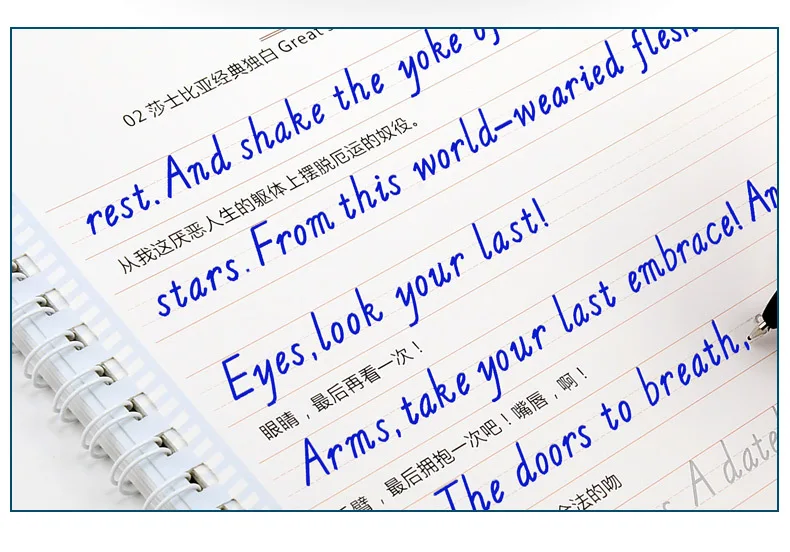 02 莎士比亚经典独白 Great
rest. And shake the yoke of
从我这厌恶人生的躯体上摆脱厄运的奴役。
stars. From this world-wearied flesh
Eyes, look your last!
眼睛，最后再看一次！
Arms, take your last embrace! An
臂，最后拥抱一次吧！嘴唇，啊！
The doors to breath,
合法的吻
A date